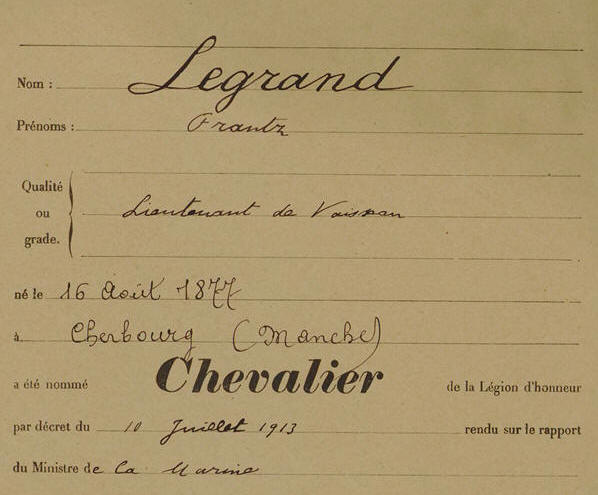 Nom : Legrand
Prénoms : Frantz
Qualité
ou Lieutenant de Vaisseau
grade.
né le 16 Août 1877
à Cherbourg (Manche)
a été nommé Chevalier de la Légion d'honneur
par décret du 10 Juillet 1913 rendu sur le rapport
du Ministre de la Marine